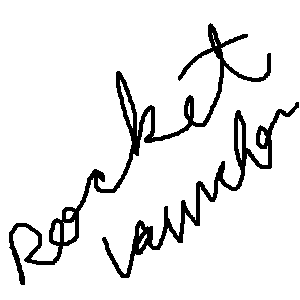 Rocket
Launcher